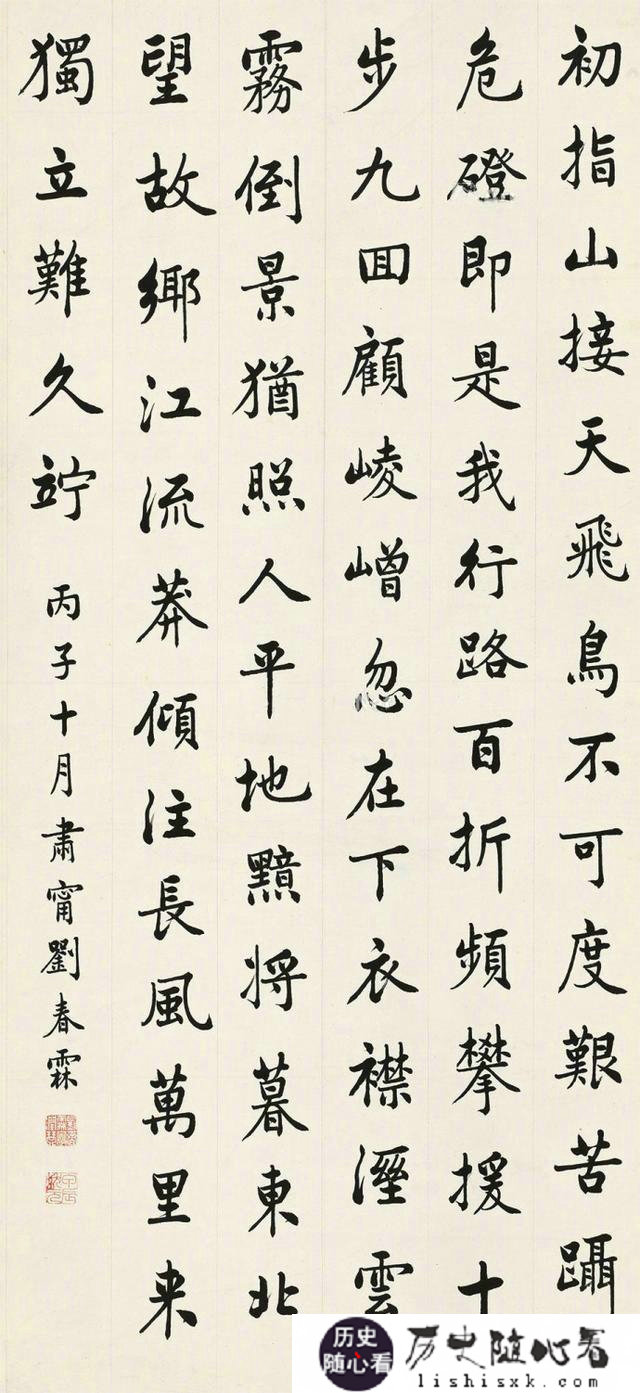 初指山接天飛鳥不可度艱苦躡
危磴即是我行路百折頻攀援十
步九回顧崚嶒忽在下衣襟溼雲
霧倒景猶照人平地黯將暮東北
望故鄉江流莽傾注長風萬里来
獨立難久竚
丙子十月肅甯劉春霖
历史随心看
历史随心看
lishisxk.com